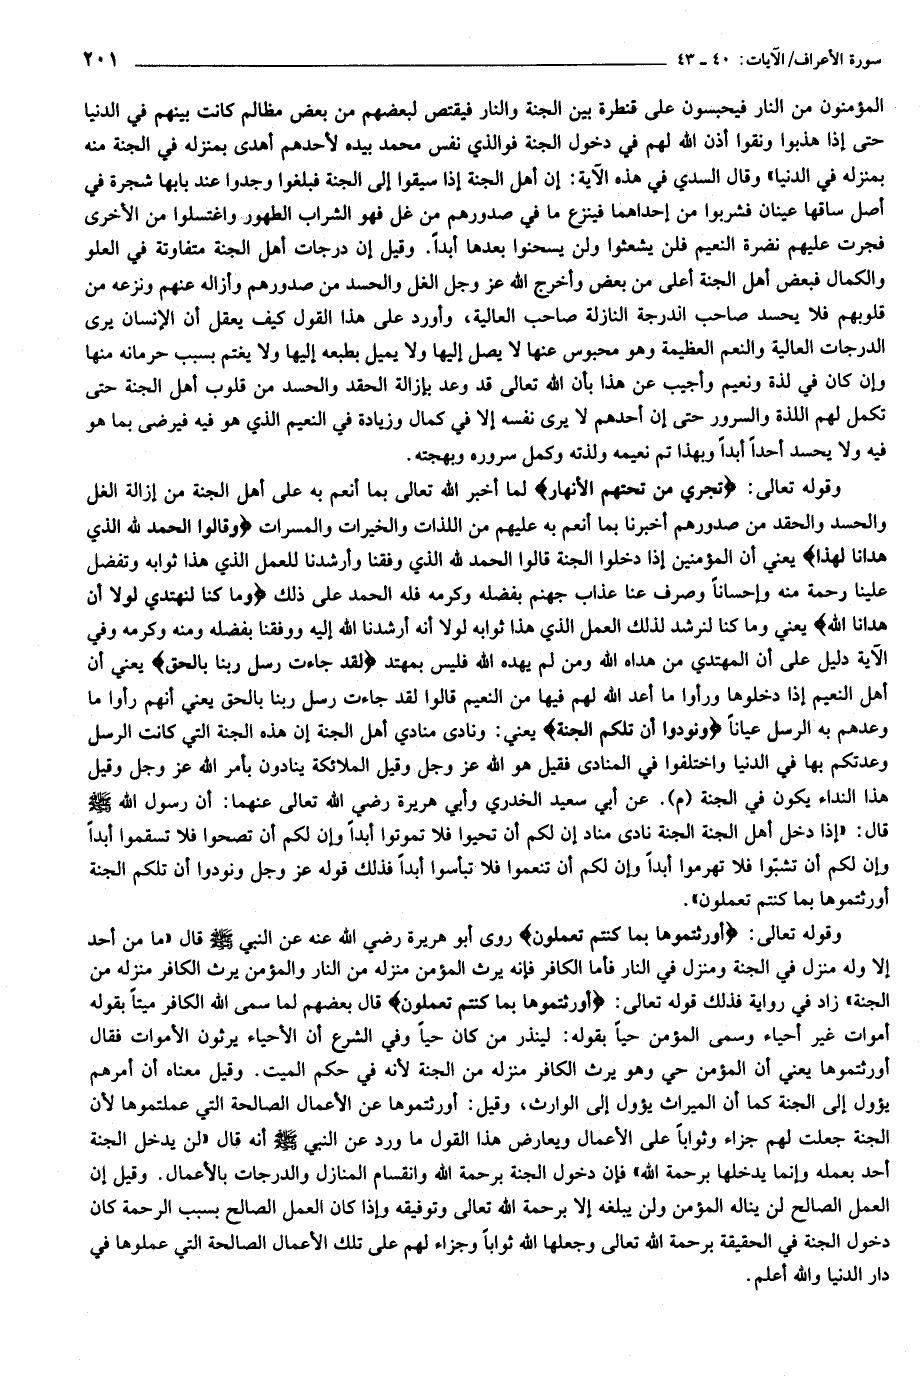 سورة الأعراف/الآيات: ٤٠ ـ ٤٣ ٢٠١
المؤمنون من النار فيحبسون على قنطرة بين الجنة والنار فيقتص لبعضهم من بعض مظالم كانت بينهم في الدنيا
حتى إذا هذبوا ونقوا أذن الله لهم في دخول الجنة فوالذي نفس محمد بيده لأحدهم أهدى بمنزله في الجنة منه
بمنزله في الدنيا» وقال السدي في هذه الآية: إن أهل الجنة إذا سيقوا إلى الجنة فبلغوا وجدوا عند بابها شجرة في
أصل ساقها عينان فشربوا من إحداهما فينزع ما في صدورهم من غل فهو الشراب الطهور واغتسلوا من الأخرى
فجرت عليهم نضرة النعيم فلن يشعثوا ولن يسحنوا بعدها أبداً. وقيل إن درجات أهل الجنة متفاوتة في العلو
والكمال فبعض أهل الجنة أعلى من بعض وأخرج الله عز وجل الغل والحسد من صدورهم وأزاله عنهم ونزعه من
قلوبهم فلا يحسد صاحب الدرجة النازلة صاحب العالية، وأورد على هذا القول كيف يعقل أن الإنسان يرى
الدرجات العالية والنعم العظيمة وهو محبوس عنها لا يصل إليها ولا يميل بطبعه إليها ولا يغتم بسبب حرمانه منها
وإن كان في لذة ونعيم وأجيب عن هذا بأن الله تعالى قد وعد بإزالة الحقد والحسد من قلوب أهل الجنة حتى
تكمل لهم اللذة والسرور حتى إن أحدهم لا يرى نفسه إلا في كمال وزيادة في النعيم الذي هو فيه فيرضى بما هو
فيه ولا يحسد أحداً أبداً وبهذا تم نعيمه ولذته وكمل سروره وبهجته.
وقوله تعالى: ﴿تجري من تحتهم الأنهار﴾ لما أخبر الله تعالى بما أنعم به على أهل الجنة من إزالة الغل
والحسد والحقد من صدورهم أخبرنا بما أنعم به عليهم من اللذات والخيرات والمسرات ﴿وقالوا الحمد لله الذي
هدانا لهذا﴾ يعني أن المؤمنين إذا دخلوا الجنة قالوا الحمد لله الذي وفقنا وأرشدنا للعمل الذي هذا ثوابه وتفضل
علينا رحمة منه وإحساناً وصرف عنا عذاب جهنم بفضله وكرمه فله الحمد على ذلك ﴿وما كنا لنهتدي لولا أن
هدانا الله﴾ يعني وما كنا لنرشد لذلك العمل الذي هذا ثوابه لولا أنه أرشدنا الله إليه ووفقنا بفضله ومنه وكرمه وفي
الآية دليل على أن المهتدي من هداه الله ومن لم يهده الله فليس بمهتد ﴿لقد جاءت رسل ربنا بالحق﴾ يعني أن
أهل النعيم إذا دخلوها ورأوا ما أعد الله لهم فيها من النعيم قالوا لقد جاءت رسل ربنا بالحق يعني أنهم رأوا ما
وعدهم به الرسل عياناً ﴿ونودوا أن تلكم الجنة﴾ يعني: ونادى منادي أهل الجنة إن هذه الجنة التي كانت الرسل
وعدتكم بها في الدنيا واختلفوا في المنادى فقيل هو الله عز وجل وقيل الملائكة ينادون بأمر الله عز وجل وقيل
هذا النداء يكون في الجنة (م). عن أبي سعيد الخدري وأبي هريرة رضي الله تعالى عنهما: أن رسول الله ﷺ
قال: «إذا دخل أهل الجنة الجنة نادى مناد إن لكم أن تحيوا فلا تموتوا أبداً وإن لكم أن تصحوا فلا تسقموا أبداً
وإن لكم أن تشبّوا فلا تهرموا أبداً وإن لكم أن تنعموا فلا تبأسوا أبداً فذلك قوله عز وجل ونودوا أن تلكم الجنة
أورثتموها بما كنتم تعملون».
وقوله تعالى: ﴿أورثتموها بما كنتم تعملون﴾ روى أبو هريرة رضي الله عنه عن النبي ﷺ قال «ما من أحد
إلا وله منزل في الجنة ومنزل في النار فأما الكافر فإنه يرث المؤمن منزله من النار والمؤمن يرث الكافر منزله من
الجنة» زاد في رواية فذلك قوله تعالى: ﴿أورثتموها بما كنتم تعملون﴾ قال بعضهم لما سمى الله الكافر ميتاً بقوله
أموات غير أحياء وسمى المؤمن حياً بقوله: لينذر من كان حياً وفي الشرع أن الأحياء يرثون الأموات فقال
أورثتموها يعني أن المؤمن حي وهو يرث الكافر منزله من الجنة لأنه في حكم الميت. وقيل معناه أن أمرهم
يؤول إلى الجنة كما أن الميراث يؤول إلى الوارث، وقيل: أورثتموها عن الأعمال الصالحة التي عملتموها لأن
الجنة جعلت لهم جزاء وثواباً على الأعمال ويعارض هذا القول ما ورد عن النبي ﷺ أنه قال «لن يدخل الجنة
أحد بعمله وإنما يدخلها برحمة الله» فإن دخول الجنة برحمة الله وانقسام المنازل والدرجات بالأعمال. وقيل إن
العمل الصالح لن يناله المؤمن ولن يبلغه إلا برحمة الله تعالى وتوفيقه وإذا كان العمل الصالح بسبب الرحمة كان
دخول الجنة في الحقيقة برحمة الله تعالى وجعلها الله ثواباً وجزاء لهم على تلك الأعمال الصالحة التي عملوها في
دار الدنيا والله أعلم.